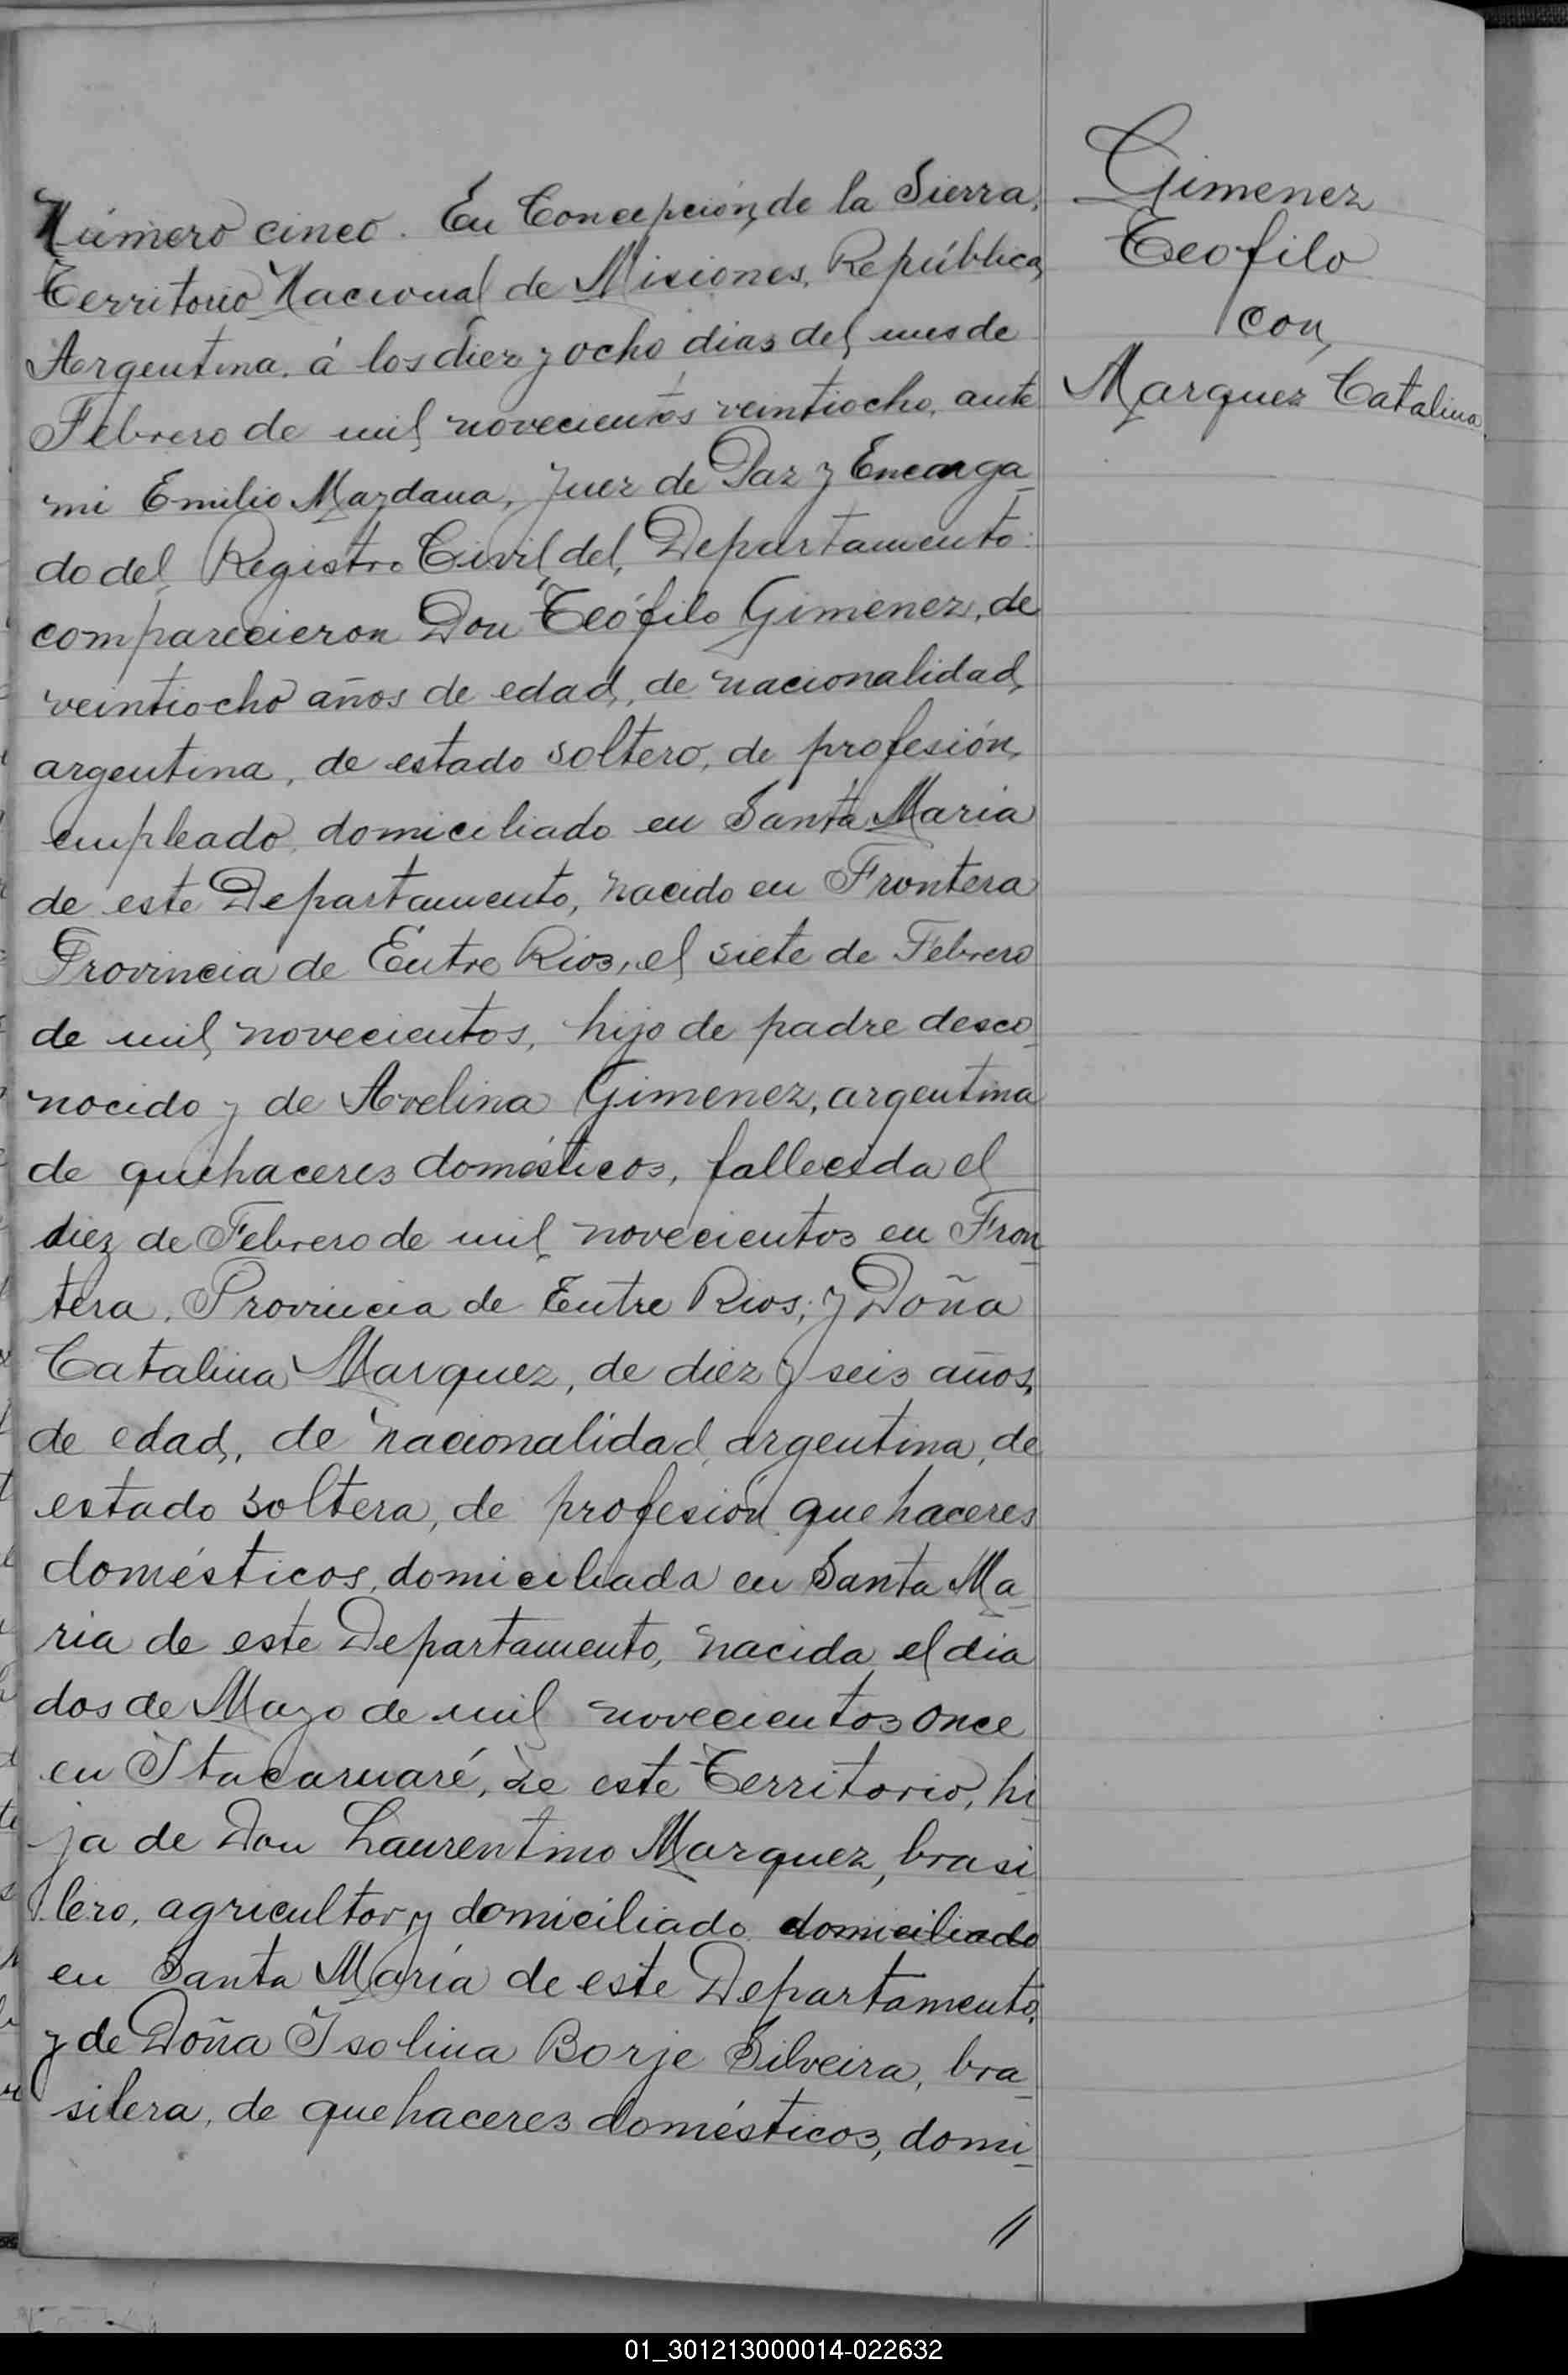 Número cinco. En Concepción, de la Sierra,
Territorio Nacional de Misiones, República
Argentina, á los diez y ocho dias del mes de
Febrero de mil novecientos veintiocho, ante
mi Emilio Maydana, Juez de Paz y Encarga-
do del Registro Civil del Departamento:
comparecieron Don Teófilo Gimenez, de
veintiocho años de edad, de nacionalidad
argentina, de estado soltero, de profesión
empleado, domiciliado en Santa Maria
de este Departamento, nacido en Frontera
Provincia de Entre Rios, el siete de Febrero
de mil novecientos, hijo de padre desco-
nocido y de Avelina Gimenez, argentina
de quehaceres domésticos, fallecida el
diez de Febrero de mil novecientos en Fron-
tera, Provincia de Entre Rios; y Doña
Catalina Marquez, de diez y seis años,
de edad, de nacionalidad, argentina, de
estado soltera, de profesión quehaceres
domésticos, domiciliada en Santa Ma-
ria de este Departamento, nacida el dia
dos de Mayo de mil novecientos once
en Itacaruaré, de este Territorio, hi-
ja de Don Laurentino Marquez, brasi-
lero, agricultor, y domiciliado domiciliado
en Santa María de este Departamento,
y de Doña Isolina Borje Silveira, bra-
silera, de quehaceres domésticos, domi-
//
Gimenez
Teofilo
con
Marquez Catalina
01_301213000014-022632